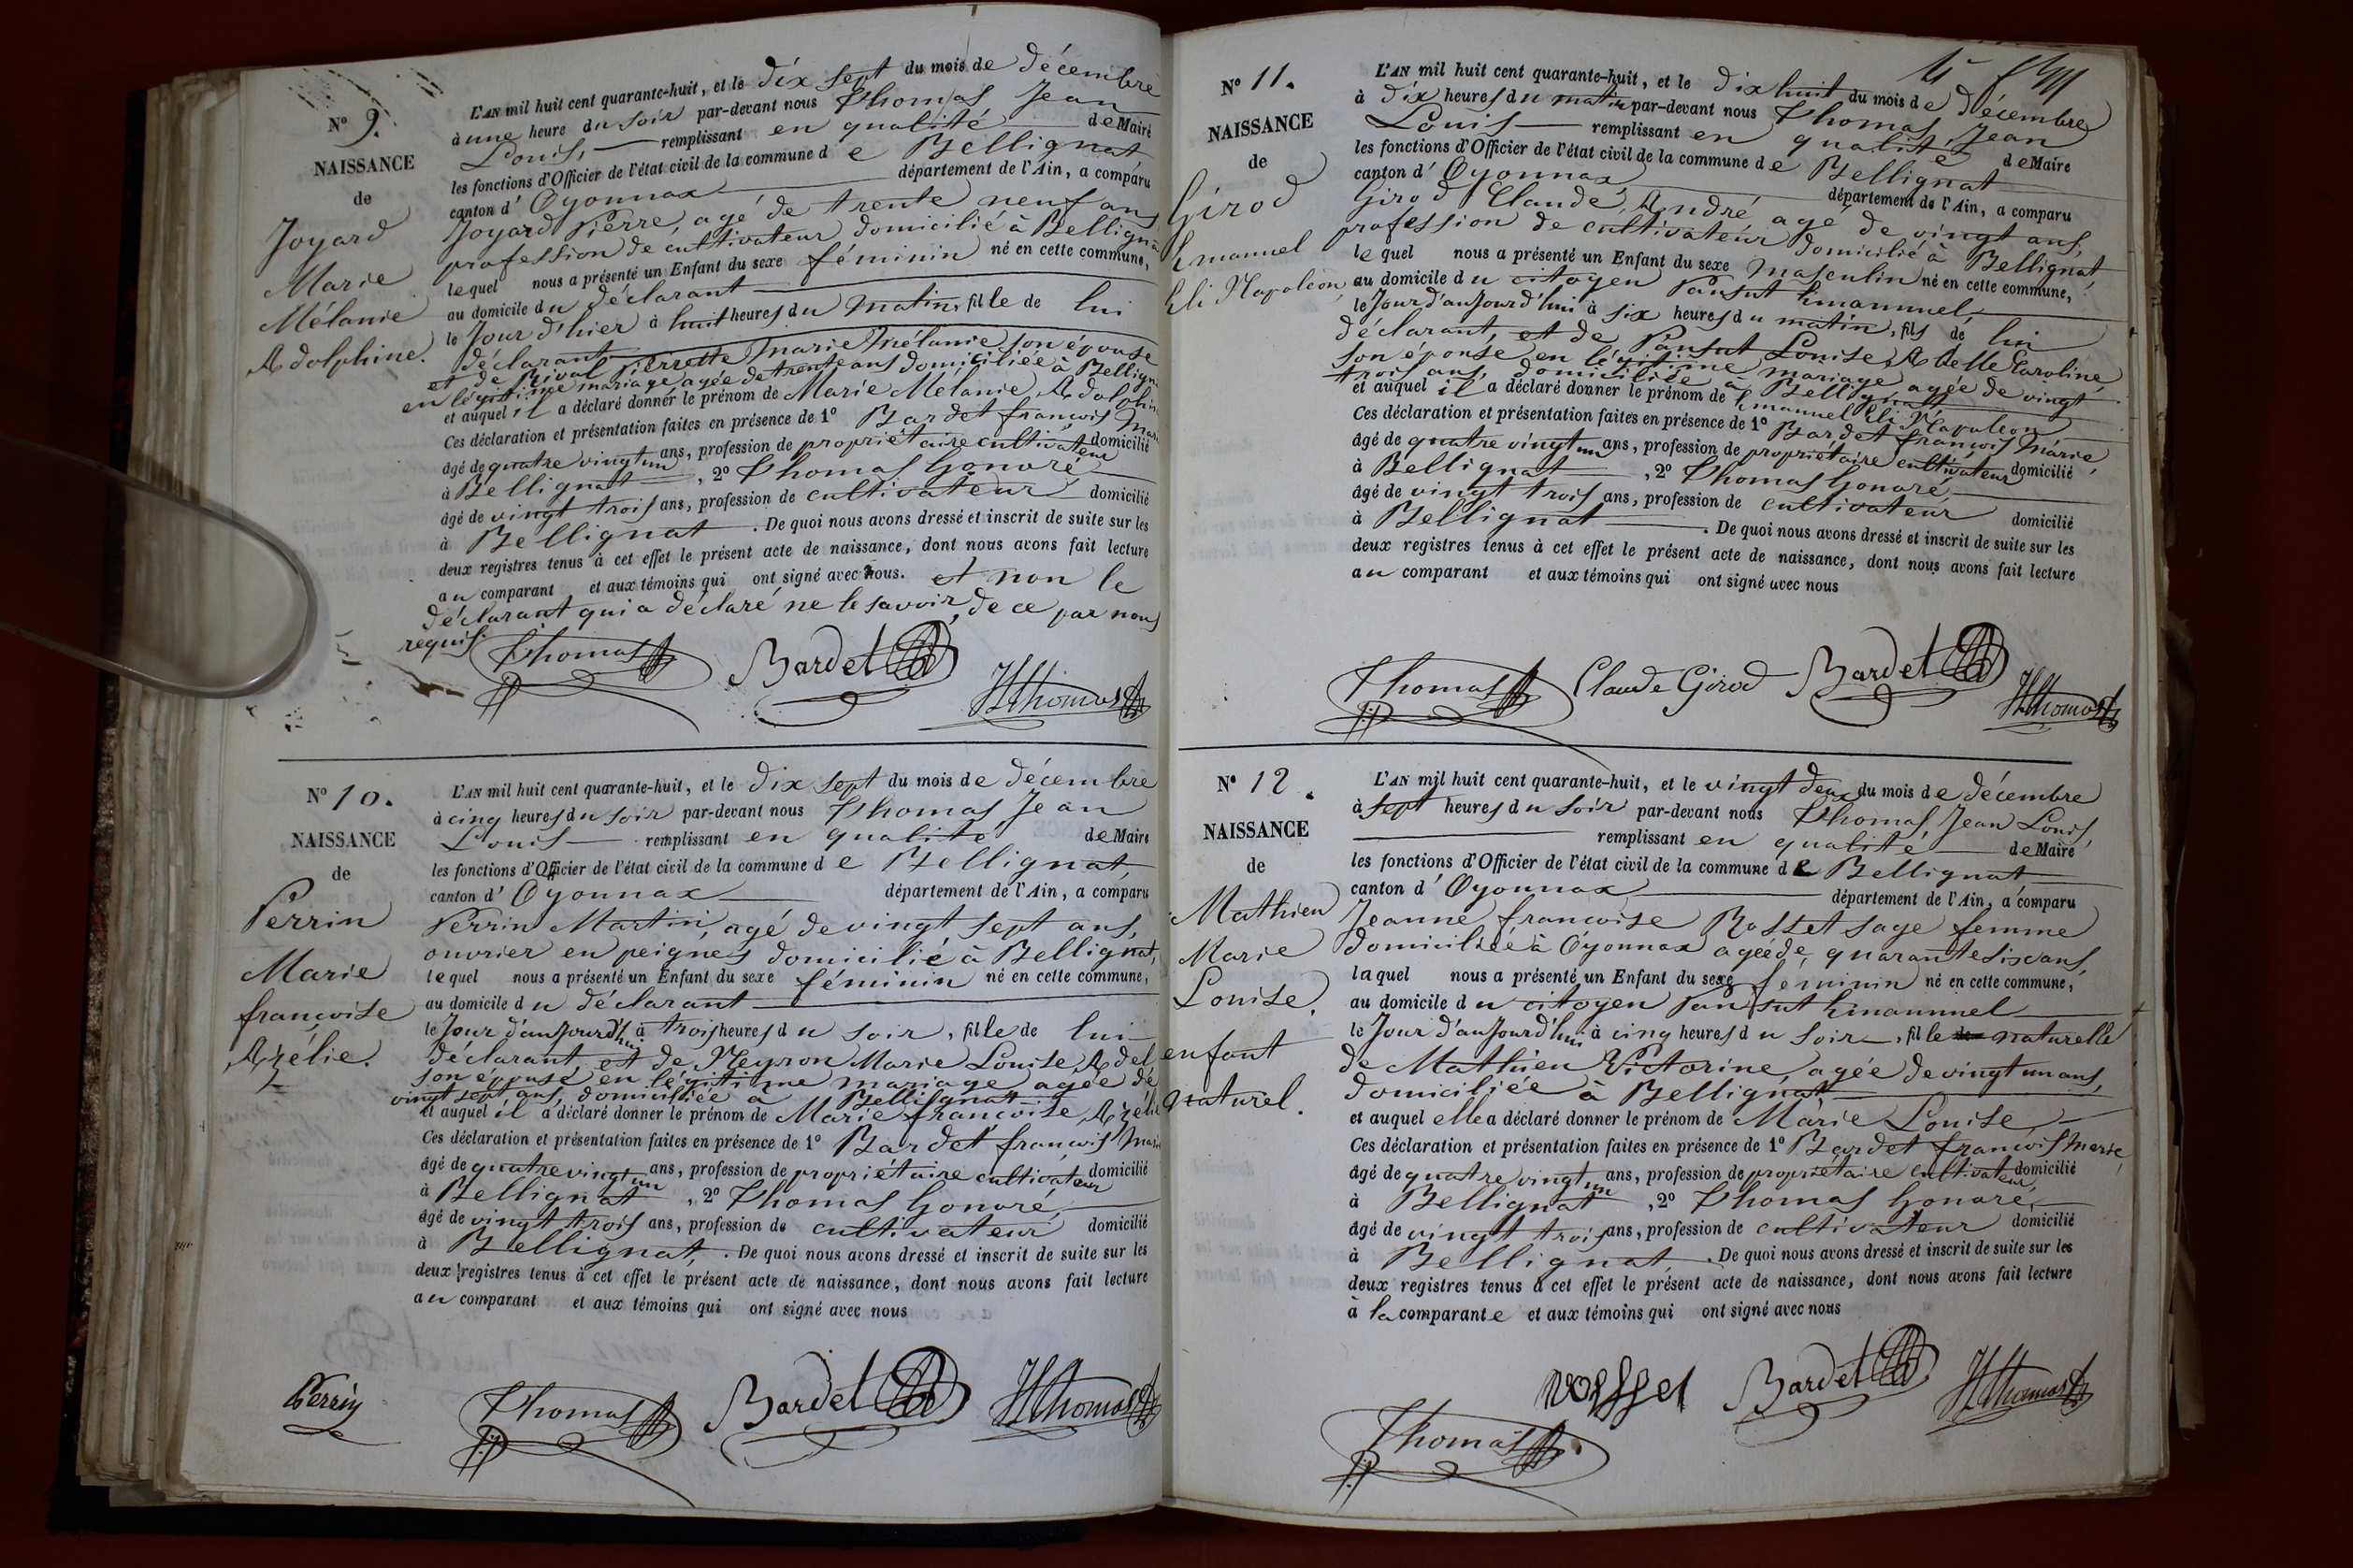 N° 9.
NAISSANCE
de
Joyard
Marie
Mélanie
Adolphine.
L'AN mil huit cent quarante-huit, et le dix sept du mois de décembre
à une heure du soir par-devant nous Thomas, Jean
Louis, remplissant en qualité de Maire
les fonctions d'Officier de l'état civil de la commune de Bellignat
canton d'Oyonnax département de l'Ain, a comparu
Joyard Pierre, agé de trente neuf ans
profession de cultivateur domicilié à Bellignat
lequel nous a présenté un Enfant du sexe féminin né en cette commune,
au domicile du déclarant
le Jour d'hier à huit heures du matin, fille de lui
déclarant
et de Rival Pierrette Marie Mélanie, son épouse
en légitime mariage agée de trente ans domiciliée à Bellignat
et auquel il a déclaré donner le prénom de Marie Mélanie Adolphine
Ces déclaration et présentation faites en présence de 1° Bardet françois Marie
âgé de quatre vingt un ans, profession de propriétaire cultivateur domicilié
à Bellignat, 2° Thomas honoré
âgé de vingt trois ans, profession de cultivateur domicilié
à Bellignat. De quoi nous avons dressé et inscrit de suite sur les
deux registres tenus à cet effet le présent acte de naissance, dont nous avons fait lecture
au comparant et aux témoins qui ont signé avec nous. et non le
déclarant qui a déclaré ne le savoir, de ce par nous
requis.
Thomas Bardet Hthomas
N° 10.
NAISSANCE
de
Perrin
Marie
françoise
Azélie.
L'AN mil huit cent quarante-huit, et le dix sept du mois de décembre
à cinq heures du soir par-devant nous Thomas, Jean
Louis remplissant en qualité de Maire
les fonctions d'Officier de l'état civil de la commune de Bellignat,
canton d'Oyonnax département de l'Ain, a comparu
Perrin Martin, agé de vingt sept ans,
ouvrier en peignes domicilié à Bellignat,
lequel nous a présenté un Enfant du sexe féminin né en cette commune,
au domicile du déclarant
le Jour d'aujourd'hui à trois heures du soir, fille de lui
déclarant, et de Neyron Marie Louise Adel
son épouse en légitime mariage agée de
vingt sept ans, domiciliée à Bellignat
et auquel il a déclaré donner le prénom de Marie françoise Azélie
Ces déclaration et présentation faites en présence de 1° Bardet françois Marie
âgé de quatre vingt un ans, profession de propriétaire cultivateur domicilié
à Bellignat, 2° Thomas honoré,
âgé de vingt trois ans, profession de cultivateur domicilié
à Bellignat,. De quoi nous avons dressé et inscrit de suite sur les
deux registres tenus à cet effet le présent acte de naissance, dont nous avons fait lecture
au comparant et aux témoins qui ont signé avec nous
Perrin Thomas Bardet Hthomas
N° 11.
NAISSANCE
de
Girod
Emanuel
Eli Napoléon
L'AN mil huit cent quarante-huit, et le dix huit du mois de décembre
à dix heures du matin par-devant nous Thomas, Jean
Louis remplissant en qualité de Maire
les fonctions d'Officier de l'état civil de la commune de Bellignat
canton d'Oyonnax département de l'Ain, a comparu
Girod Claude, André agé de vingt ans,
profession de cultivateur domicilié à Bellignat,
lequel nous a présenté un Enfant du sexe masculin né en cette commune,
au domicile du citoyen Pansut Emanuel,
le Jour d'aujourd'hui à six heures du matin, fils de lui
déclarant, et de Pansut Louise Adelle Caroline,
son épouse en légitime mariage agée de vingt
trois ans, domiciliée à Bellignat
et auquel il a déclaré donner le prénom de Emanuel Eli Napoléon
Ces déclaration et présentation faites en présence de 1° Bardet françois Marie,
âgé de quatre vingt un ans, profession de propriétaire cultivateur domicilié
à Bellignat, 2° Thomas honoré,
âgé de vingt trois ans, profession de cultivateur domicilié
à Bellignat. De quoi nous avons dressé et inscrit de suite sur les
deux registres tenus à cet effet le présent acte de naissance, dont nous avons fait lecture
au comparant et aux témoins qui ont signé avec nous
Thomas Claude Girod Bardet Hthomas
N° 12.
NAISSANCE
de
Mathieu
Marie
Louise.
enfant
naturel.
L'AN mil huit cent quarante-huit, et le vingt deux du mois de décembre
à sept heures du soir par-devant nous Thomas, Jean Louis,
remplissant en qualité de Maire
les fonctions d'Officier de l'état civil de la commune de Bellignat
canton d'Oyonnax département de l'Ain, a comparu
Jeanne françoise Rosset sage femme
domiciliée à Oyonnax agée de quarante six ans,
laquel nous a présenté un Enfant du sexe féminin né en cette commune,
au domicile du citoyen Pansut Emanuel
le Jour d'aujourd'hui à cinq heures du soir, fille de naturelle
de Mathieu Victorine agée de vingt un ans,
domiciliée à Bellignat
et auquel elle a déclaré donner le prénom de Marie Louise,
Ces déclaration et présentation faites en présence de 1° Bardet françois Marie,
âgé de quatre vingt un ans, profession de propriétaire cultivateur domicilié
à Bellignat, 2° Thomas honoré,
âgé de vingt trois ans, profession de cultivateur domicilié
à Bellignat. De quoi nous avons dressé et inscrit de suite sur les
deux registres tenus à cet effet le présent acte de naissance, dont nous avons fait lecture
à la comparante et aux témoins qui ont signé avec nous
rosset Bardet Hthomas
Thomas